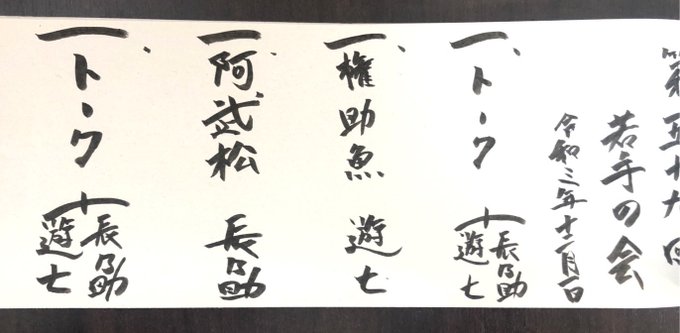 第五十九回
若手の会
令和三年十二月一日
一、トーク
辰乃助
遊七
一、権助魚 遊七
一、阿武松 辰乃助
一、トーク
辰乃助
遊七